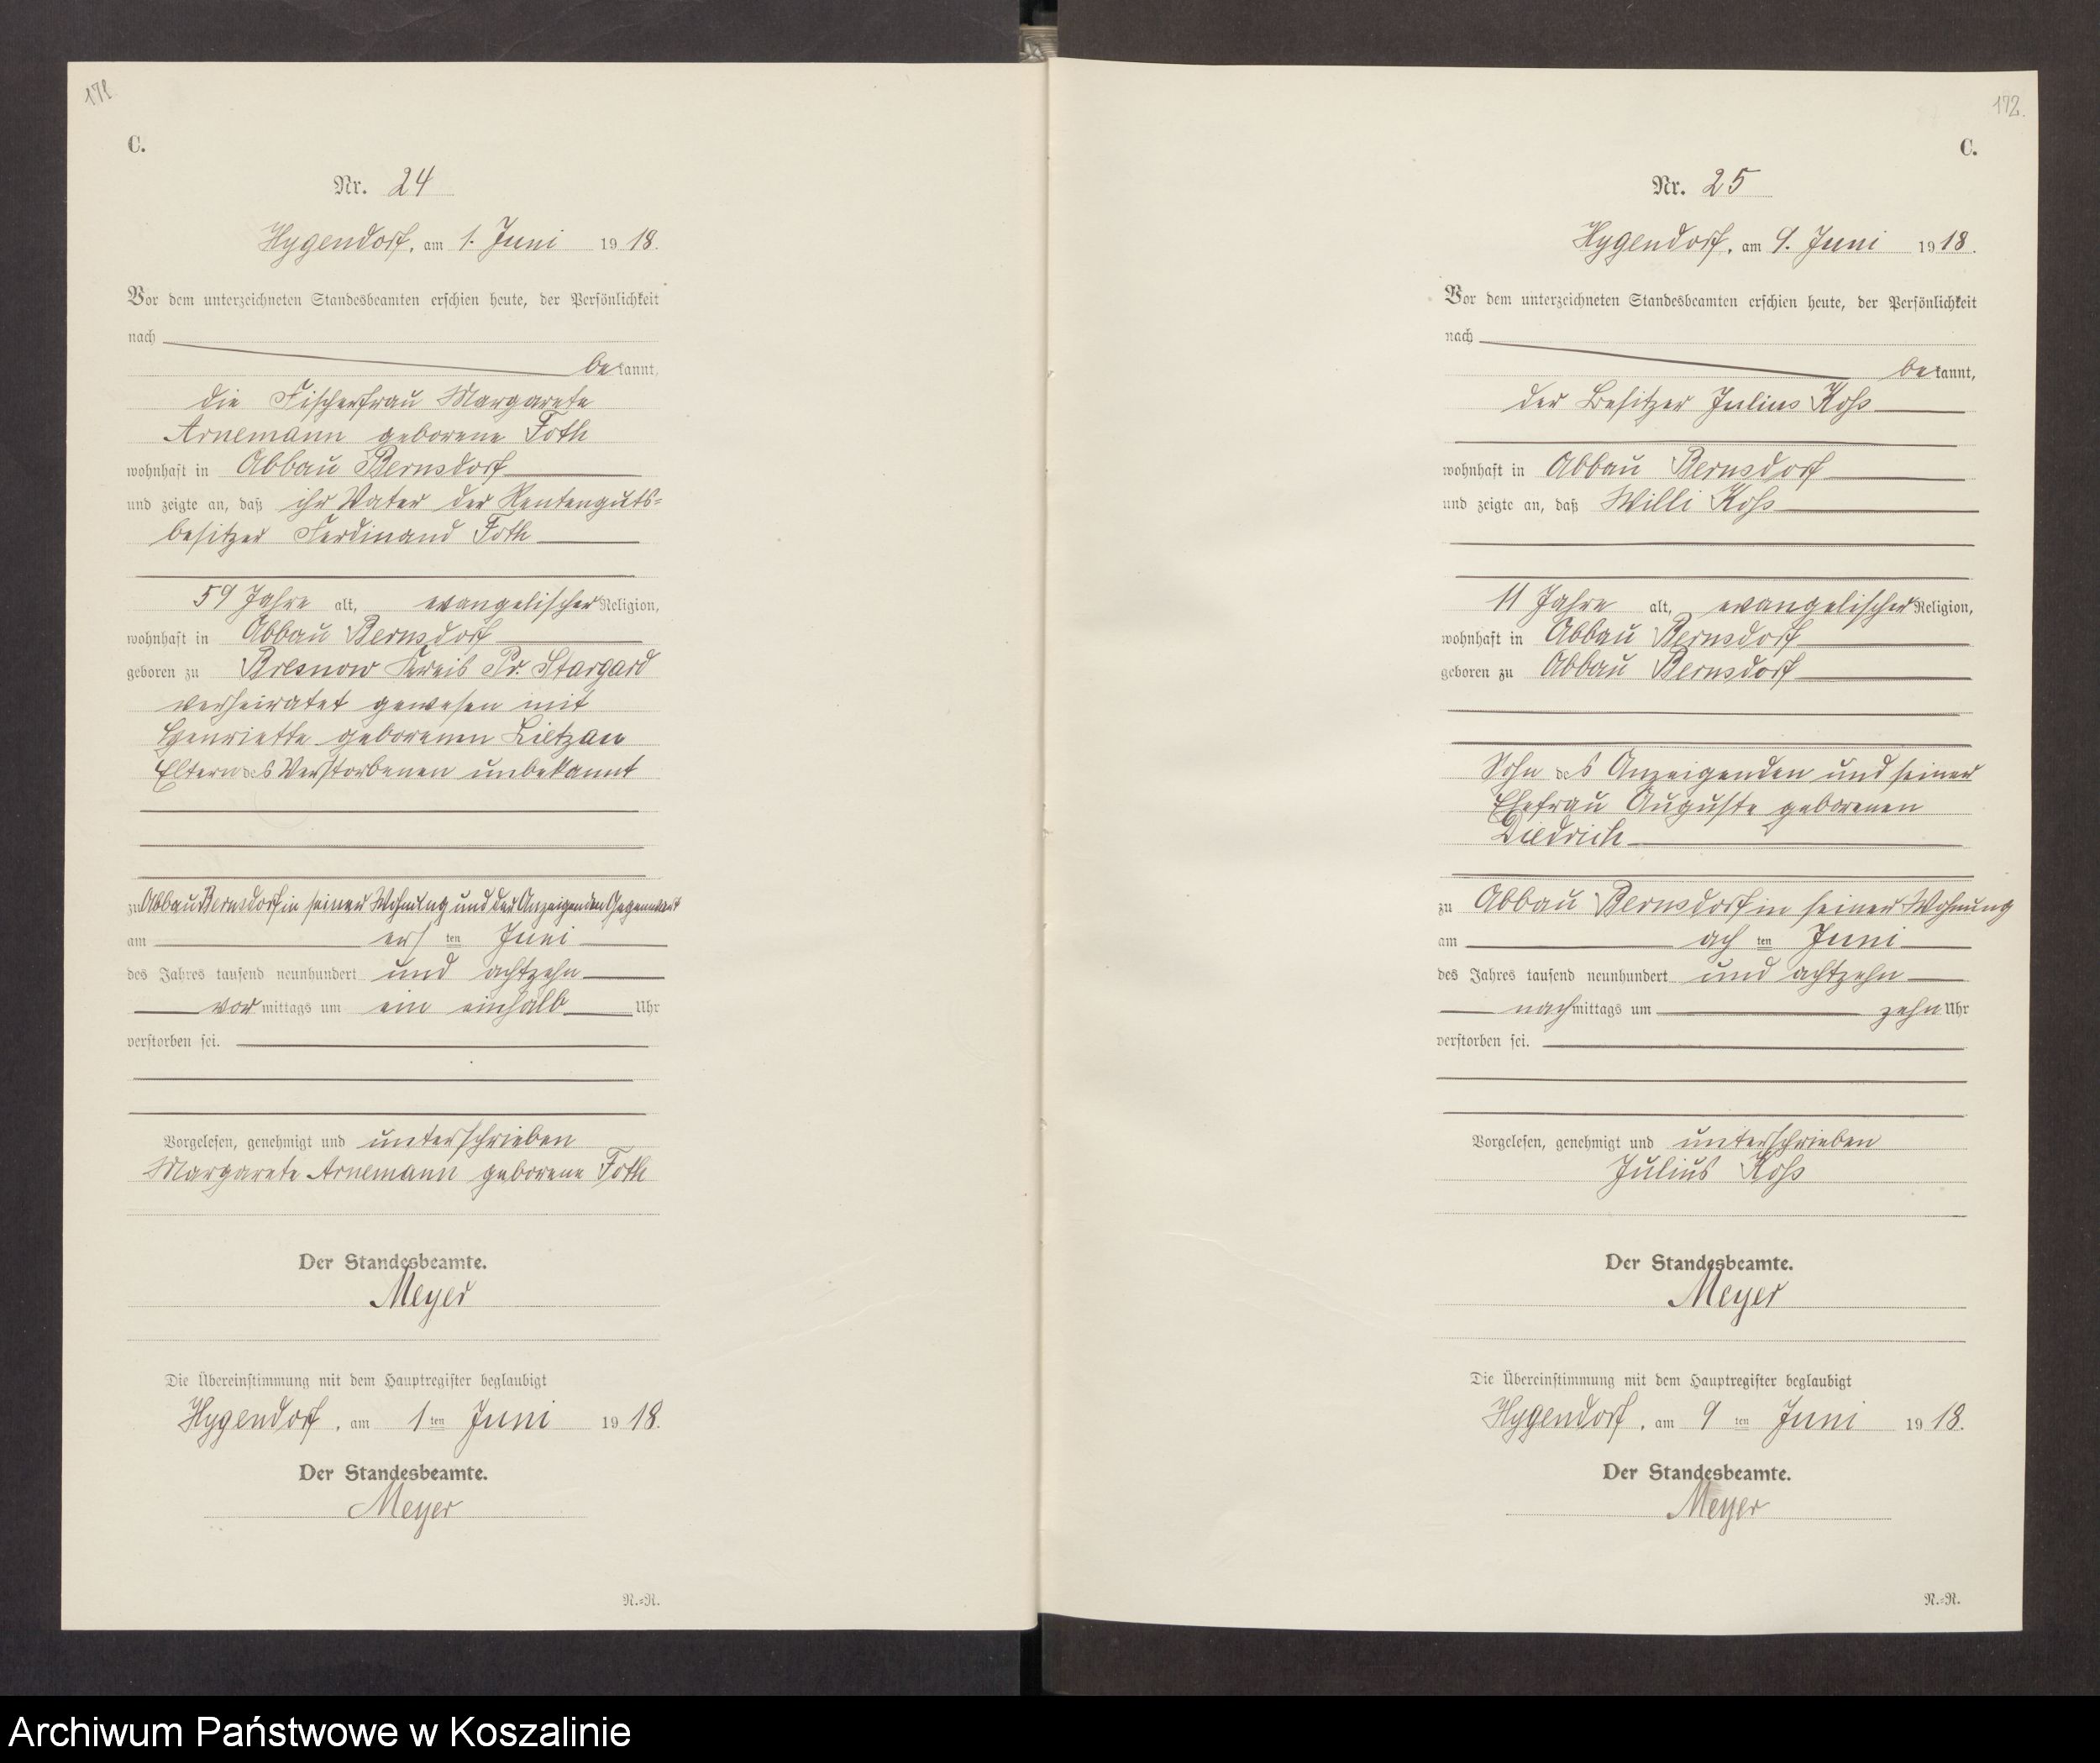 171
C.
Nr. 24
Hygendorf, am 1. Juni 1918.
Vor dem unterzeichneten Standesbeamten erschien heute, der Persönlichkeit
nach
bekannt,
die Fischerfrau Margarete
Arnemann geborene Foth
wohnhaft in Abbau Bernsdorf
und zeigte an, daß ihr Vater der Rentenguts-
besitzer Ferdinand Foth
59 Jahre alt, evangelischer Religion,
wohnhaft in Abbau Bernsdorf
geboren zu Bresnow Kreis Pr. Stargard
verheiratet gewesen mit
Henriette geborenen Lietzau
Eltern des Verstorbenen unbekannt
zu Abbau Bernsdorf in seiner Wohnung und der Anzeigenden Gegenwart
am ersten Juni
des Jahres tausend neunhundert und achtzehn
vormittags um ein einhalb Uhr
verstorben sei.
Vorgelesen, genehmigt und unterschrieben
Margarete Arnemann geborene Foth
Der Standesbeamte.
Meyer
Die Übereinstimmung mit dem Hauptregister beglaubigt
Hygendorf, am 1ten Juni 1918.
Der Standesbeamte.
Meyer
N.=N.
172.
C.
Nr. 25
Hygendorf, am 9. Juni 1918.
Vor dem unterzeichneten Standesbeamten erschien heute, der Persönlichkeit
nach
bekannt,
der Besitzer Julius Koss
wohnhaft in Abbau Bernsdorf
und zeigte an, daß Willi Koss
11 Jahre alt, evangelischer Religion,
wohnhaft in Abbau Bernsdorf
geboren zu Abbau Bernsdorf
Sohn des Anzeigenden und seiner
Ehefrau Auguste geborenen
Diedrich
zu Abbau Bernsdorf in seiner Wohnung
am achten Juni
des Jahres tausend neunhundert und achtzehn
nachmittags um zehn Uhr
verstorben sei.
Vorgelesen, genehmigt und unterschrieben
Julius Koss
Der Standesbeamte.
Meyer
Die Übereinstimmung mit dem Hauptregister beglaubigt
Hygendorf, am 9ten Juni 1918.
Der Standesbeamte.
Meyer
N.=N.
Archiwum Państwowe w Koszalinie